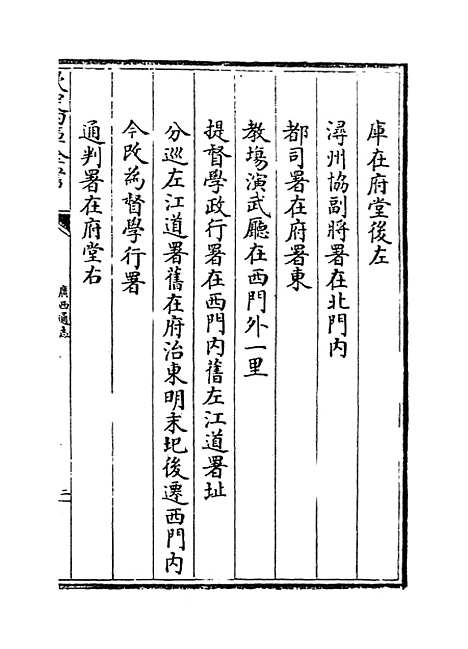 庫在府堂後左
潯州協副將署在北門內
都司署在府署東
教塲演武廳在西門外一里
提督學政行署在西門內舊左江道署址
分巡左江道署舊在府治東明末圯後遷西門內
今改為督學行署
通判署在府堂右
廣西通志